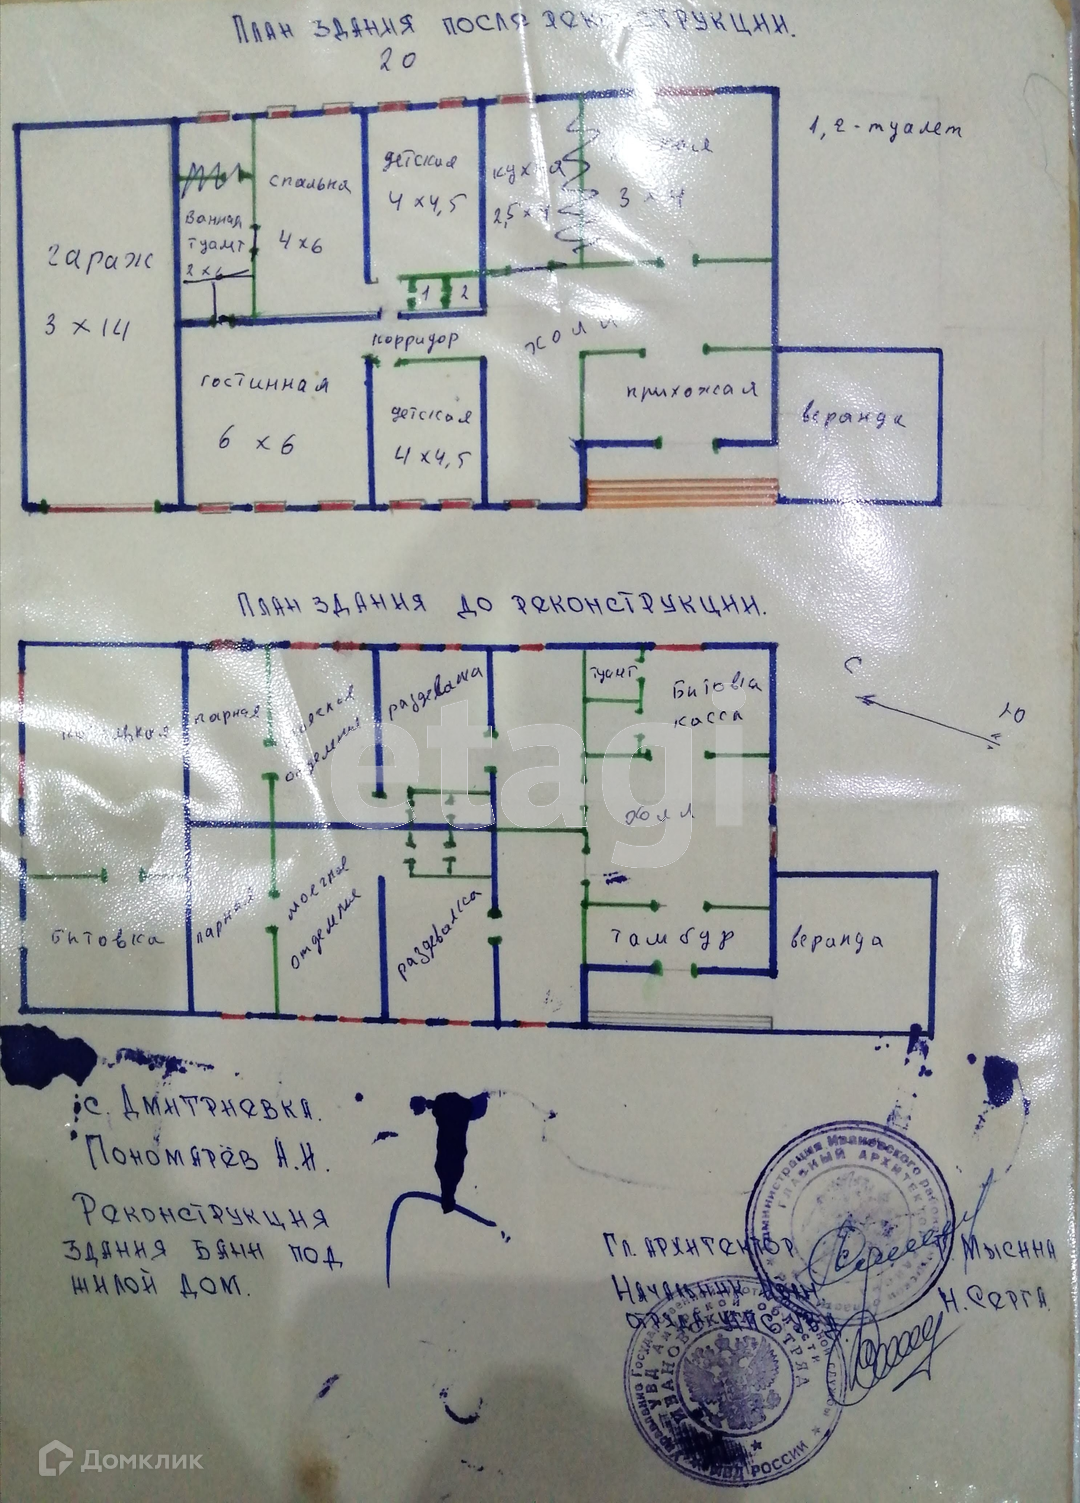 ПЛАН ЗДАНИЯ ПОСЛЕ РЕКОНСТРУКЦИИ.
20
1,2-туалет
гараж
3 х 14
ванная
туалет
2 х 6
спальна
4 х 6
детская
4 х 4,5
кухня
2,5 х 4
3 х 4
1
2
корридор
холл
гостинная
6 х 6
детская
4 х 4,5
прихожая
веранда
ПЛАН ЗДАНИЯ ДО РЕКОНСТРУКЦИИ.
парная
отделения
раздевалка
туалет
Битовка
касса
С
Ю
холл
Битовка
парная
моечное
отделние
раздевалка
тамбур
веранда
etagi
с. ДМИТРИЕВКА.
ПОНОМАРЁВ А.И.
РЕКОНСТРУКЦИЯ
ЗДАНИЯ БАНИ ПОД
ЖИЛОЙ ДОМ.
ГЛ. АРХИТЕКТОР
МЫСИНА
НАЧАЛЬНИК ИВАН.
Н. СЕРГА.
Администрация Ивановского района
ГЛАВНЫЙ АРХИТЕКТОР
УВД Амурской области
ИВАНОВ
ОТРЯД
МВД РОССИИ
Домклик